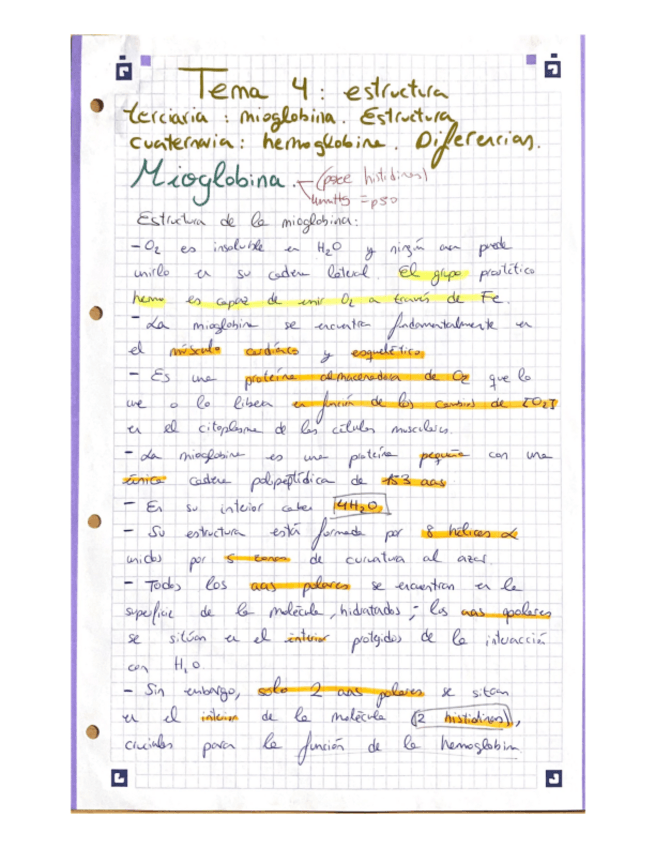 Tema 4: estructura
terciaria: mioglobina. Estructura
cuaternaria: hemoglobina. Diferencias.
Mioglobina. (posee histidinas)
= p50
Estructura de la mioglobina:
- O2 es insoluble en H2O y ningún aa puede
unirlo en su cadena lateral. El grupo prostético
hemo es capaz de unir O2 a través de Fe.
- La mioglobina se encuentra fundamentalmente en
el músculo cardíaco y esquelético.
- Es una proteína almacenadora de O2 que lo
une o lo libera en función de los cambios de [O2]
en el citoplasma de las células musculares.
- La mioglobina es una proteína pequeña con una
única cadena polipeptídica de 153 aas.
- En su interior caben 4H2O
- Su estructura está formada por 8 hélices α
unidas por 5 zonas de curvatura al azar.
- Todos los aas polares se encuentran en la
superficie de la molécula, hidratados; los aas apolares
se sitúan en el interior protegidos de la interacción
con H2O
- Sin embargo, solo 2 aas polares se sitúan
en el interior de la molécula (2 histidinas),
cruciales para la función de la hemoglobina